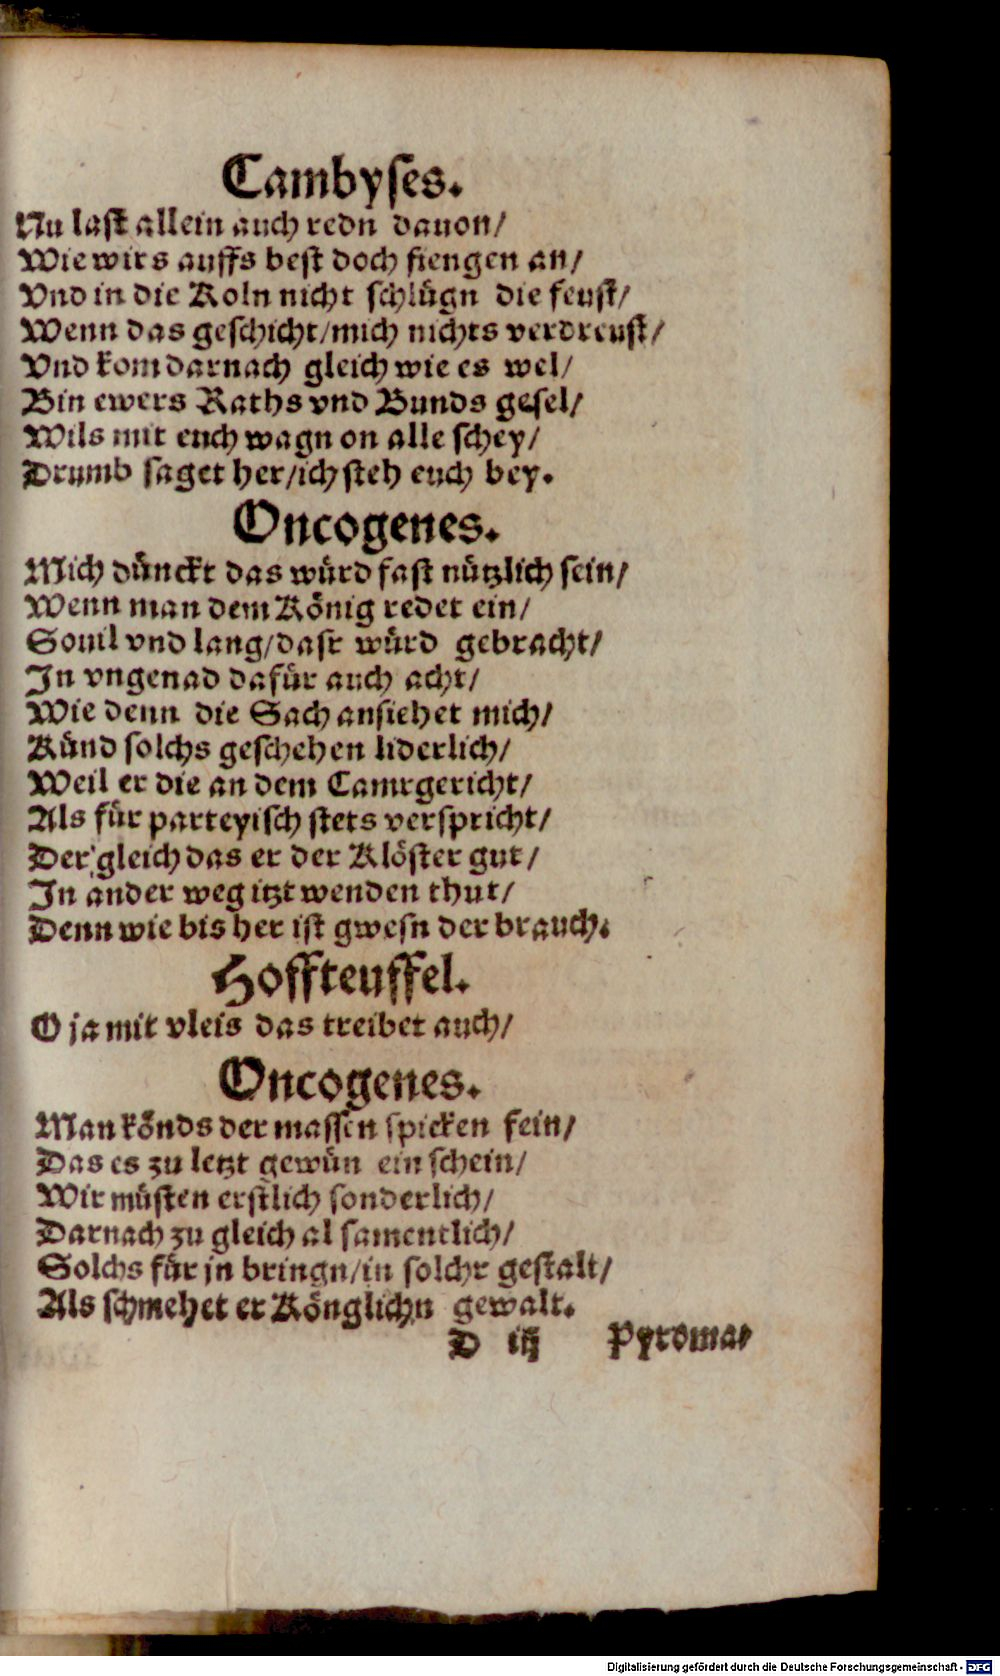 Cambyses.
Nu last allein auch redn dauon/
Wie wirs auffs best doch fiengen an/
Vnd in die Koln nicht schlügn die feust/
Wenn das geschicht/mich nichts verdreust/
Vnd kom darnach gleich wie es wel/
Bin ewers Raths vnd Bunds gesel/
Wils mit euch wagn on alle schey/
Drumb saget her/ich steh euch bey.
Oncogenes.
Mich dünckt das würd fast nützlich sein/
Wenn man dem König redet ein/
Souil vnd lang/dasr würd gebracht/
In vngenad dafür auch acht/
Wie denn die Sach ansiehet mich/
Künd solchs geschehen liderlich/
Weil er die an dem Camrgericht/
Als für parteyisch stets verspricht/
Der gleich das er der Klöster gut/
In ander weg itzt wenden thut/
Denn wie bis her ist gwesn der brauch.
Hoffteuffel.
O ja mit vleis das treibet auch/
Oncogenes.
Man könds der massen spicken fein/
Das es zu letzt gewün ein schein/
Wir müsten erstlich sonderlich/
Darnach zu gleich al samentlich/
Solchs für jn bringn/in solchr gestalt/
Als schmehet er Könglichn gewalt.
D iij Pyroma-
Digitalisierung gefördert durch die Deutsche Forschungsgemeinschaft - DFG